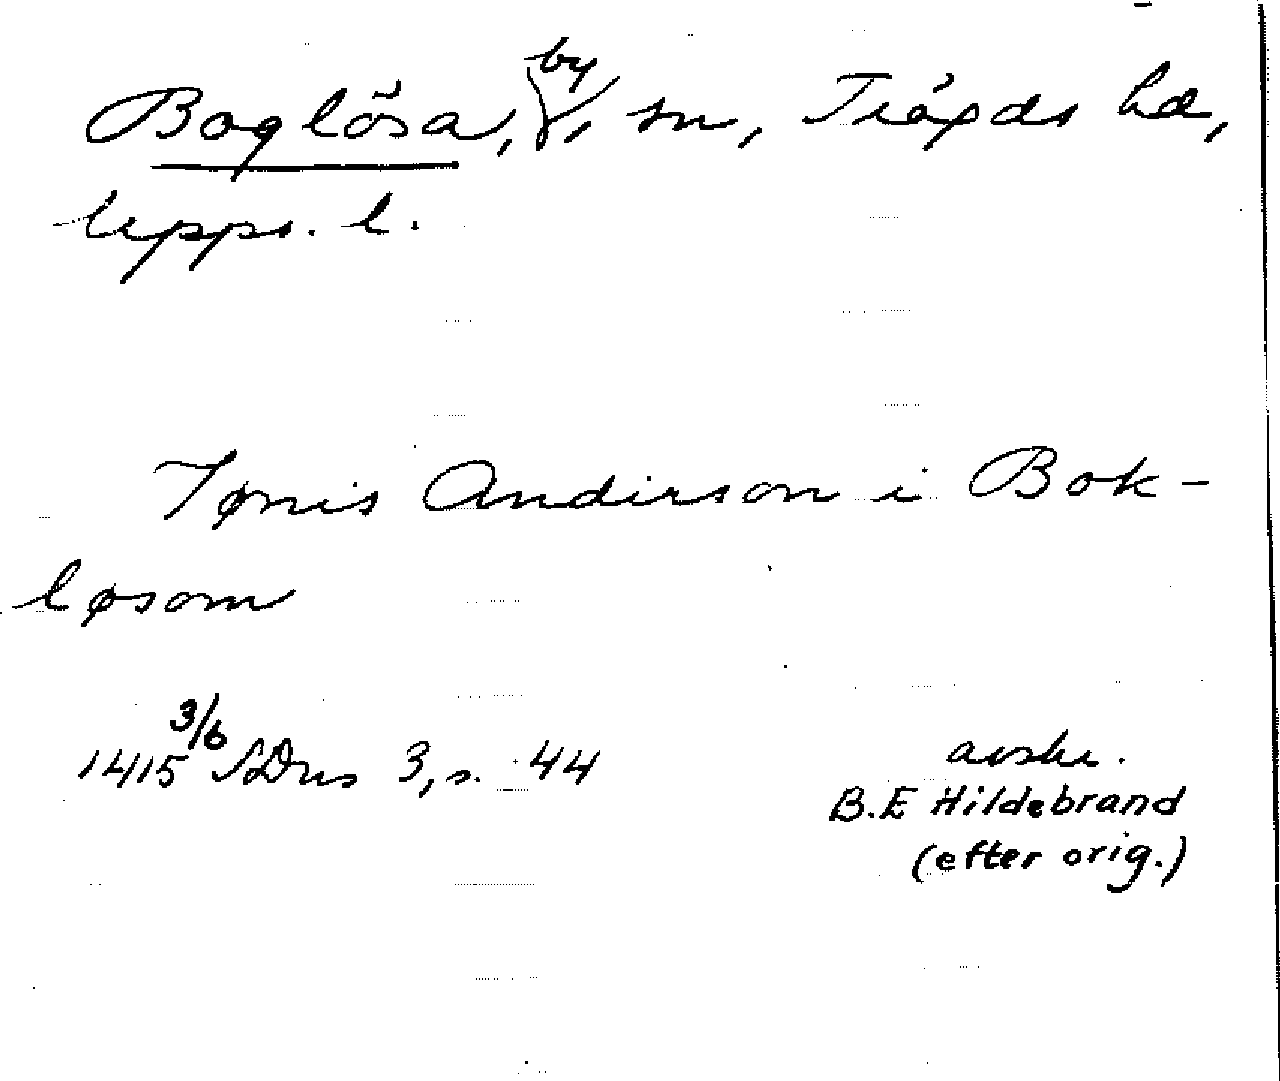 Boglösa, by, sn, Trögds hd,
Upps. l.
Tønis Anderson i Bok-
løsom
1415 3/6 SDns 3, s. 44
avskr.
B.E Hildebrand
(efter orig.)